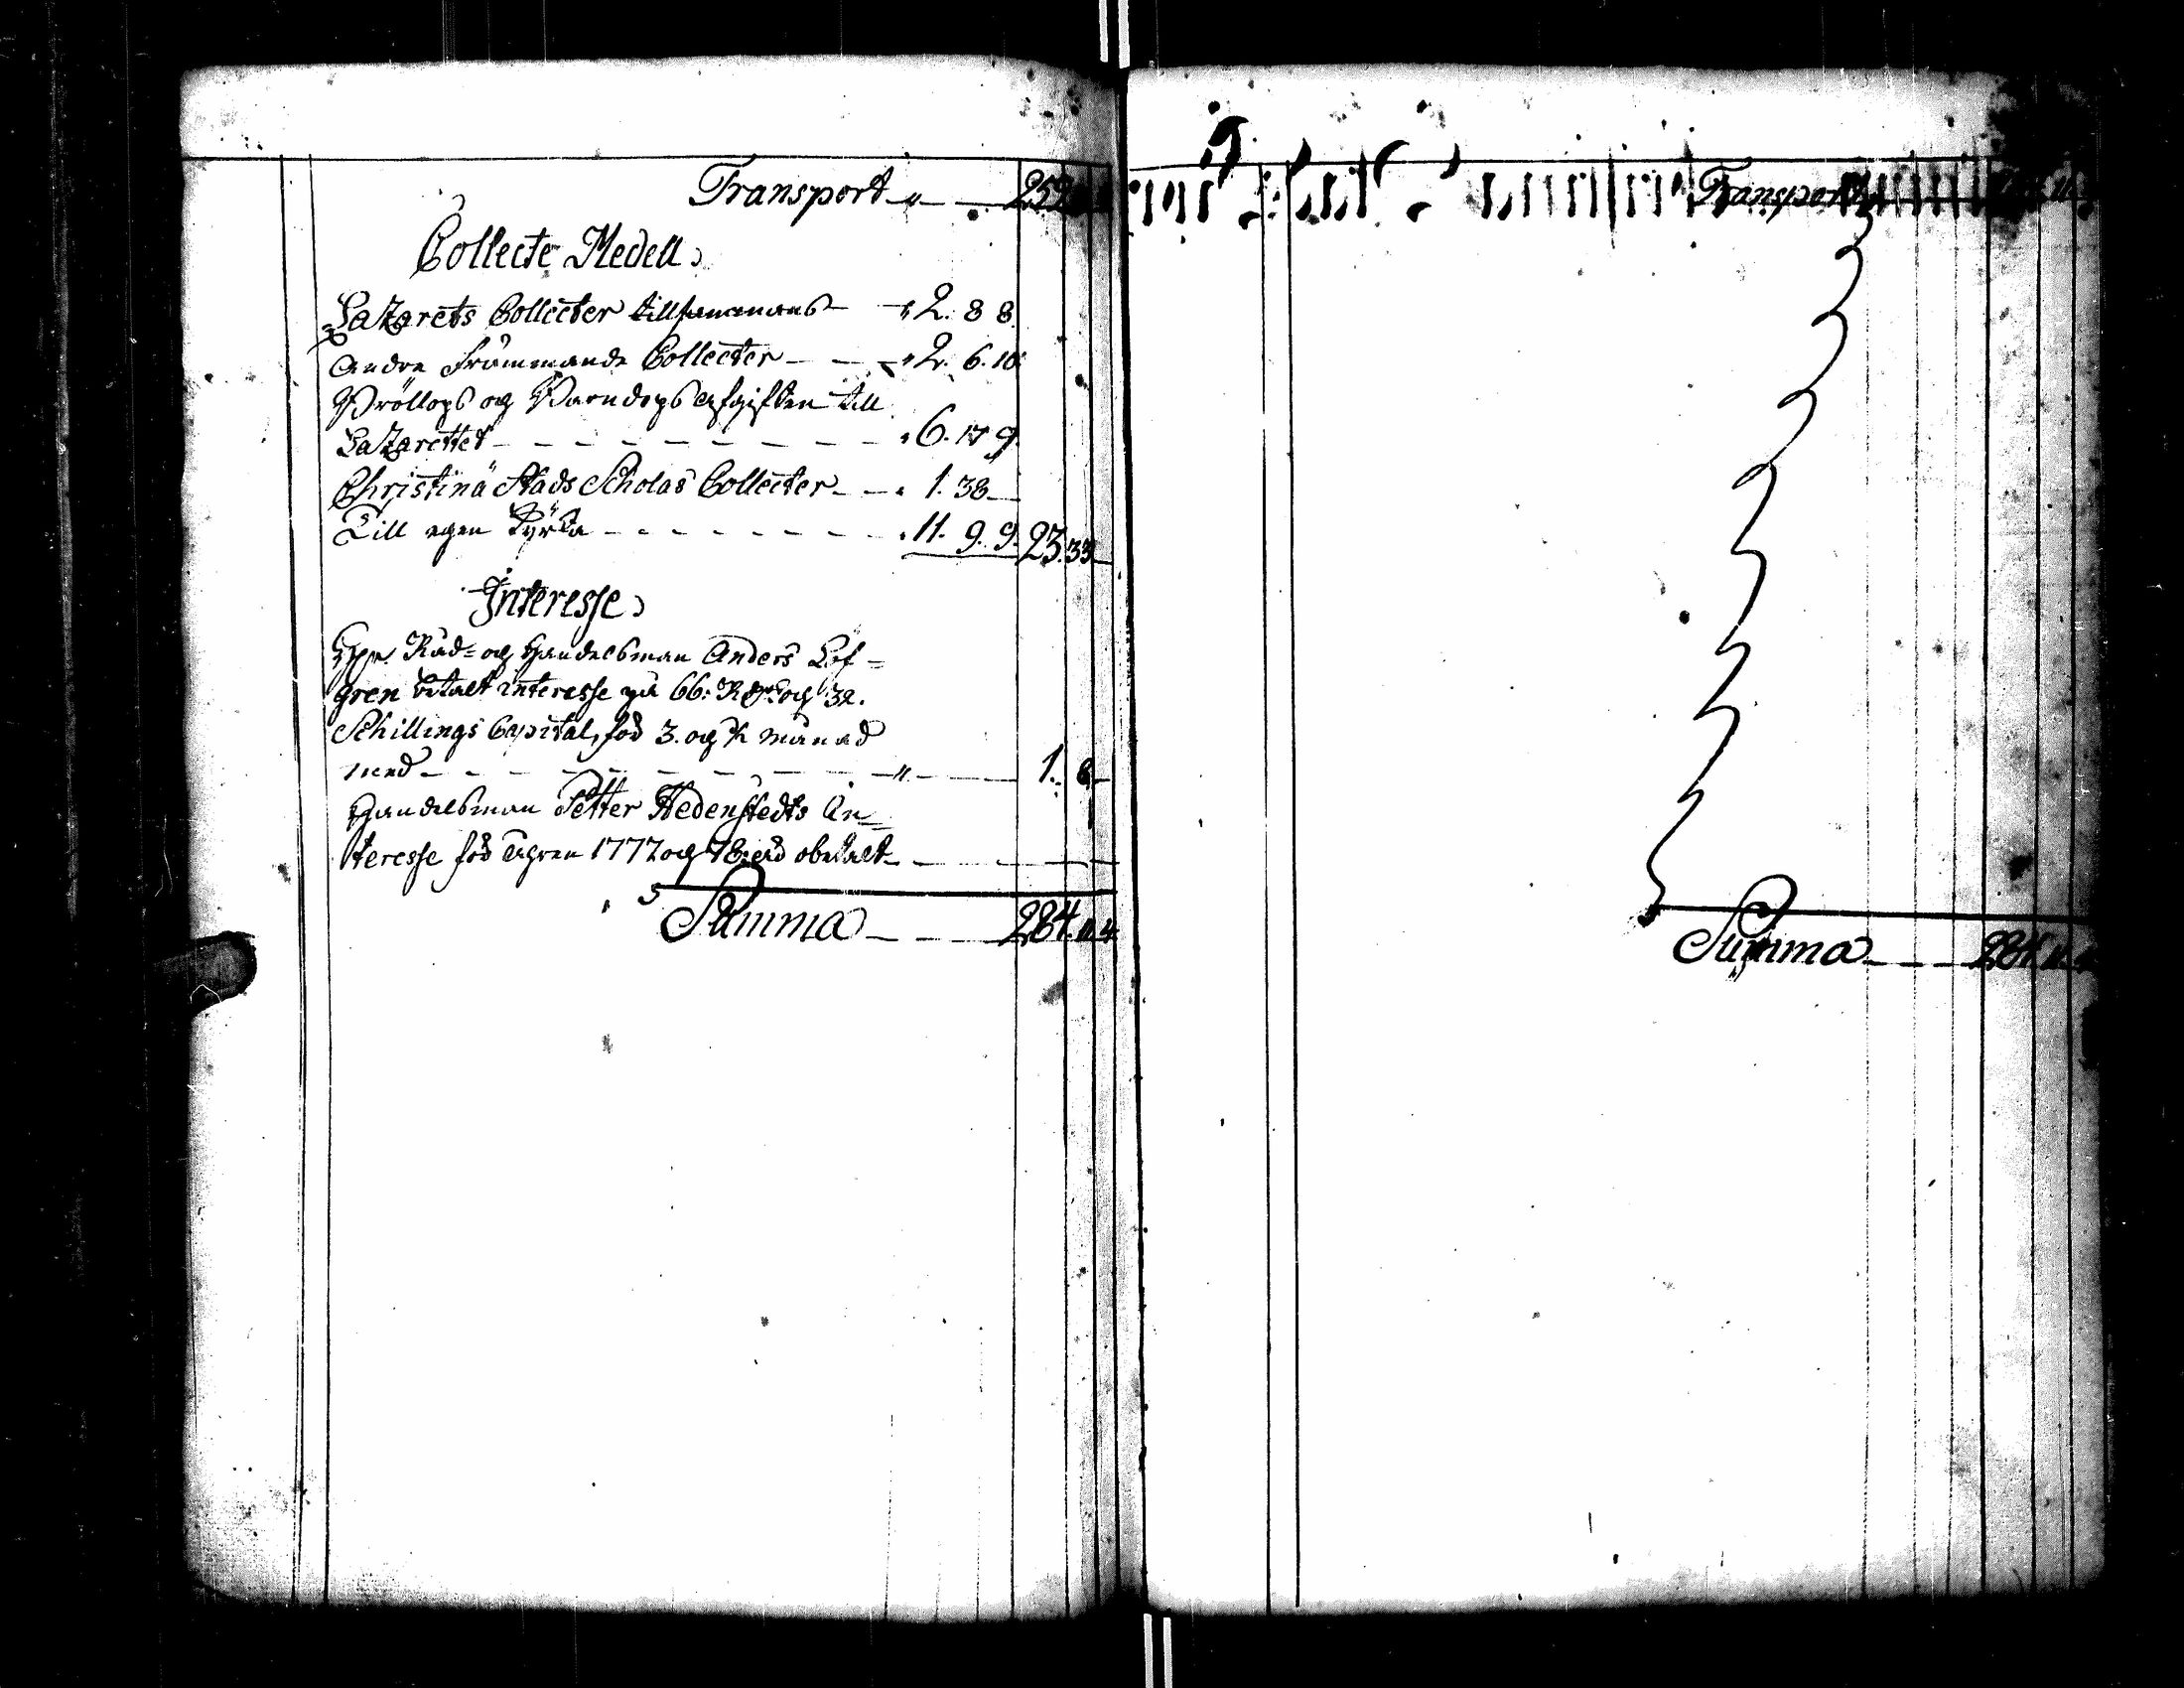 Transport 259
Collecte Medell
Lazarets Collecter tillsammans 2. 8 8.
Andre främmande Collecter 2. 6. 10.
Bröllops og Barndops afgiften till
Lazarettet 6. 17 9.
Christinä Stads Scholas Collecter 1. 38
Till egen Kyrka 11. 9. 9. 23. 33
Interesse
Herr Råd- og Handelsman Anders Löf-
gren betalt interesse på 66: Rdr og 32.
Schillings Capital, för 3. og ½ månad
med 1. 8
Handelsman Petter Hedenstedts In-
teresse för åhren 1777 og 78. är obetalt
Summa 284. 11. 4.
Transport
Summa 284. 11.